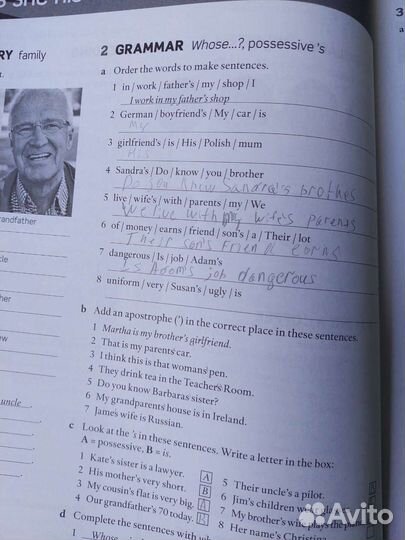 RY family
2 GRAMMAR Whose...?, possessive 's
a Order the words to make sentences.
1 in / work / father's / my / shop / I
I work in my father's shop
2 German / boyfriend's / My / car / is
My
3 girlfriend's / is / His / Polish / mum
His
4 Sandra's / Do / know / you / brother
Do you know Sandra's brother
5 live / wife's / with / parents / my / We
We live with my wife's parents
6 of / money / earns / friend / son's / a / Their / lot
Their son's friend earns
7 dangerous / Is / job / Adam's
Is Adam's job dangerous
8 uniform / very / Susan's / ugly / is
b Add an apostrophe (') in the correct place in these sentences.
1 Martha is my brother's girlfriend.
2 That is my parents car.
3 I think this is that womans pen.
4 They drink tea in the Teachers Room.
5 Do you know Barbaras sister?
6 My grandparents house is in Ireland.
7 James wife is Russian.
c Look at the 's in these sentences. Write a letter in the box:
A = possessive, B = is.
1 Kate's sister is a lawyer. A
2 His mother's very short. B
3 My cousin's flat is very big. A
4 Our grandfather's 70 today. B
5 Their uncle's a pilot.
6 Jim's children
7 My brother's wife plays the
8 Her name's Christina
d Complete the sentences with
1 Whose
randfather
cle
her
ew
uncle
3
Avito